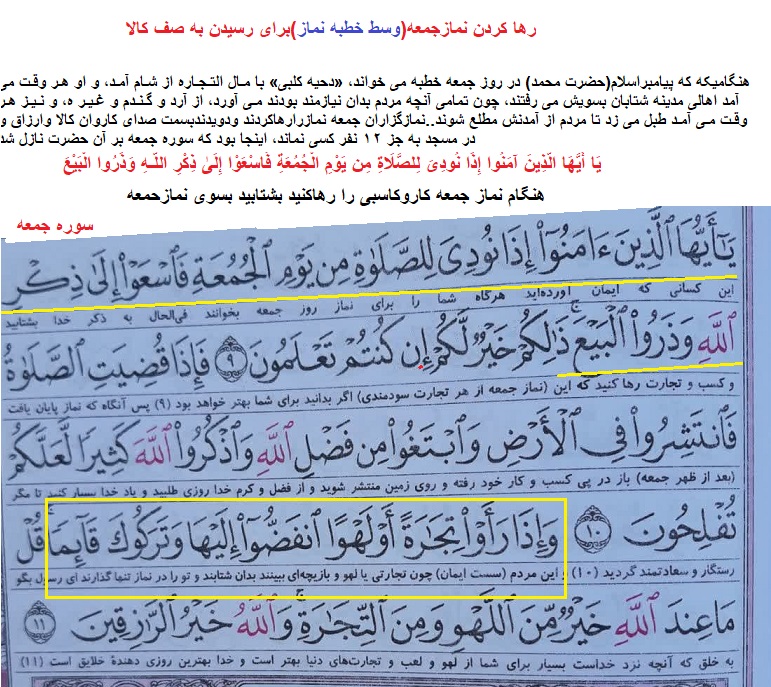 رها کردن نمازجمعه(وسط خطبه نماز)برای رسیدن به صف کالا
هنگامیکه که پیامبراسلام(حضرت محمد) در روز جمعه خطبه می خواند، «دحیه کلبی» با مـال التجـاره از شـام آمـد، و او هـر وقـت می
آمد اهالی مدینه شتابان بسویش می رفتند، چون تمامی آنچه مردم بدان نیازمند بودند مـی آورد، از آرد و گـنـدم و غیـر ه، و نیـز هـر
وقت مـی آمـد طبل می زد تا مردم از آمدنش مطلع شوند..نمازگزاران جمعه نمازرارهاکردند ودویدندبسمت صدای کاروان کالا وارزاق و
در مسجد به جز ۱۲ نفر کسی نماند، اینجا بود که سوره جمعه بر آن حضرت نازل شد
يَا أَيُّهَا الَّذِينَ آمَنُوا إِذَا نُودِيَ لِلصَّلَاةِ مِن يَوْمِ الْجُمُعَةِ فَاسْعَوْا إِلَىٰ ذِكْرِ اللَّـهِ وَذَرُوا الْبَيْعَ
هنگام نماز جمعه کاروکاسبی را رهاکنید بشتابید بسوی نمازحمعه
سوره جمعه
يَٰٓأَيُّهَا ٱلَّذِينَ ءَامَنُوٓا۟ إِذَا نُودِىَ لِلصَّلَوٰةِ مِن يَوْمِ ٱلْجُمُعَةِ فَٱسْعَوْا۟ إِلَىٰ ذِكْرِ
این کسانی که ایمان آورده‌اید هرگاه شما را برای نماز روز جمعه بخوانند فی‌الحال به ذکر خدا بشتابید
ٱللَّهِ وَذَرُوا۟ ٱلْبَيْعَ ۚ ذَٰلِكُمْ خَيْرٌ لَّكُمْ إِن كُنتُمْ تَعْلَمُونَ ﴿٩﴾ فَإِذَا قُضِيَتِ ٱلصَّلَوٰةُ
و کسب و تجارت رها کنید که این (نماز جمعه از هر تجارت سودمندی) اگر بدانید برای شما بهتر خواهد بود (۹) پس آنگاه که نماز پایان یافت
فَٱنتَشِرُوا۟ فِى ٱلْأَرْضِ وَٱبْتَغُوا۟ مِن فَضْلِ ٱللَّهِ وَٱذْكُرُوا۟ ٱللَّهَ كَثِيرًا لَّعَلَّكُمْ
(بعد از ظهر جمعه) باز در پی کسب و کار خود رفته و روی زمین منتشر شوید و از فضل و کرم خدا روزی طلبید و یاد خدا بسیار کنید تا مگر
تُفْلِحُونَ ﴿١٠﴾ وَإِذَا رَأَوْا۟ تِجَٰرَةً أَوْ لَهْوًا ٱنفَضُّوٓا۟ إِلَيْهَا وَتَرَكُوكَ قَآئِمًا ۚ قُلْ
رستگار و سعادتمند گردید (۱۰) و این مردم (سست ایمان) چون تجارتی یا لهو و بازیچه‌ای ببینند بدان شتابند و تو را در نماز تنها گذارند ای رسول بگو
مَا عِندَ ٱللَّهِ خَيْرٌ مِّنَ ٱللَّهْوِ وَمِنَ ٱلتِّجَٰرَةِ ۚ وَٱللَّهُ خَيْرُ ٱلرَّٰزِقِينَ ﴿١١﴾
به خلق که آنچه نزد خداست بسیار برای شما از لهو و لعب و تجارت‌های دنیا بهتر است و خدا بهترین روزی دهندهٔ خلایق است (۱۱)